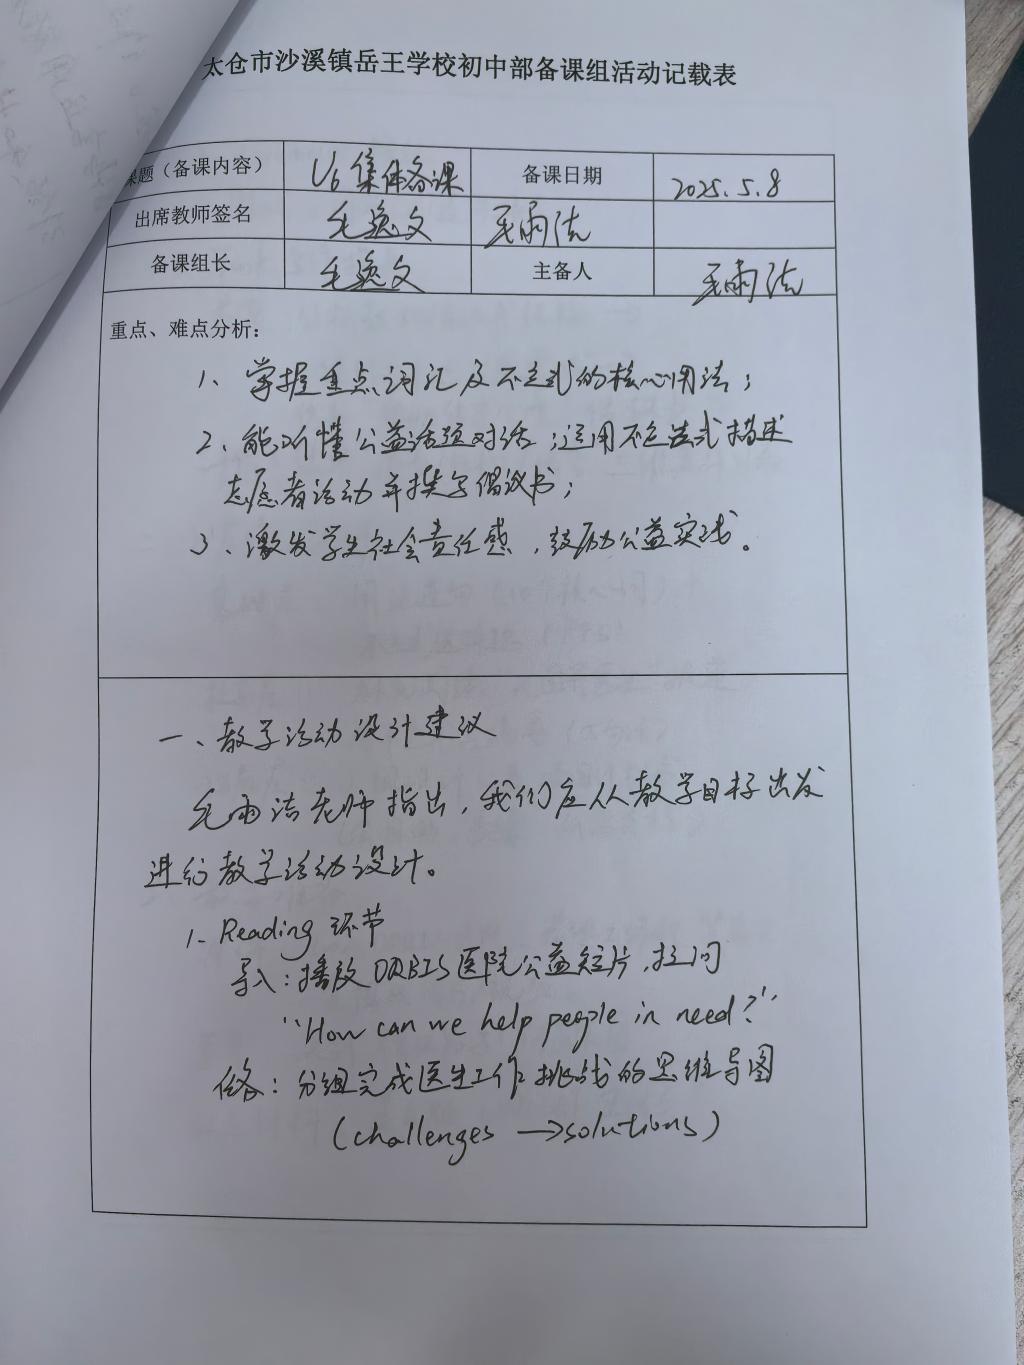 太仓市沙溪镇岳王学校初中部备课组活动记载表
课题（备课内容） U6 集体备课 备课日期 2025.5.8
出席教师签名 毛逸文 毛雨洁
备课组长 毛逸文 主备人 毛雨洁
重点、难点分析：
1、掌握重点词汇及不定式的核心用法；
2、能听懂公益话题对话；运用不定式描述
志愿者活动并撰写倡议书；
3、激发学生社会责任感，鼓励公益实践。
一、教学活动设计建议
毛雨洁老师指出，我们应从教学目标出发
进行教学活动设计。
1. Reading 环节
导入：播放ORBIS医院公益短片，提问
"How can we help people in need?"
任务：分组完成医生工作挑战的思维导图
(challenges →solutions)